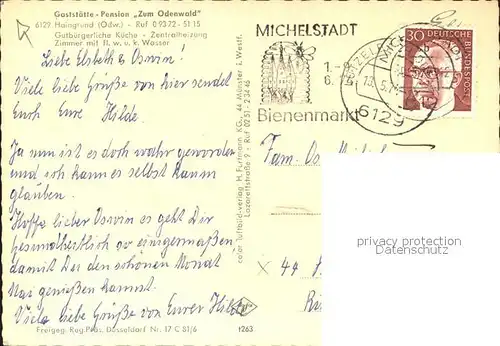 Gaststätte - Pension „Zum Odenwald"
6129 Haingrund (Odw.) - Ruf 0 93 72 - 51 15
Gutbürgerliche Küche - Zentralheizung
Zimmer mit fl. w. u. k. Wasser
Liebe Elsbeth & Oswin!
Viele liebe Grüße von hier sendet
Euch Eure Hilde.
Ja nun ist es doch wahr geworden
und ich kann es selbst kaum
glauben.
Hoffe lieber Oswin es geht Dir
gesundheitlich so einigermaßen
damit Du den schönen Monat
Mai genießen kannst.
Viele liebe Grüße von Eurer Hilde
Freigeg. Reg. Präs. Düsseldorf Nr. 17 C 81/6
1263
color luftbild-verlag H. Furtmann KG., 44 Münster i. Westf.
Lazarettstraße 9 - Ruf 02 51 - 2 34 46
MICHELSTADT
1. -
6.
Bienenmarkt
LÜTZEL
6129
30
DEUTSCHE
BUNDESPOST
Fam.
44
privacy protection
Datenschutz